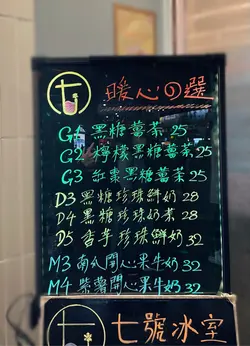 七
暖心の選
G1 黑糖薑茶 25
G2 檸檬黑糖薑茶 25
G3 紅棗黑糖薑茶 25
D3 黑糖珍珠鮮奶 28
D4 黑糖珍珠奶茶 28
D5 香芋珍珠鮮奶 32
M3 南瓜開心果牛奶 32
M4 紫薯開心果牛奶 32
七號冰室